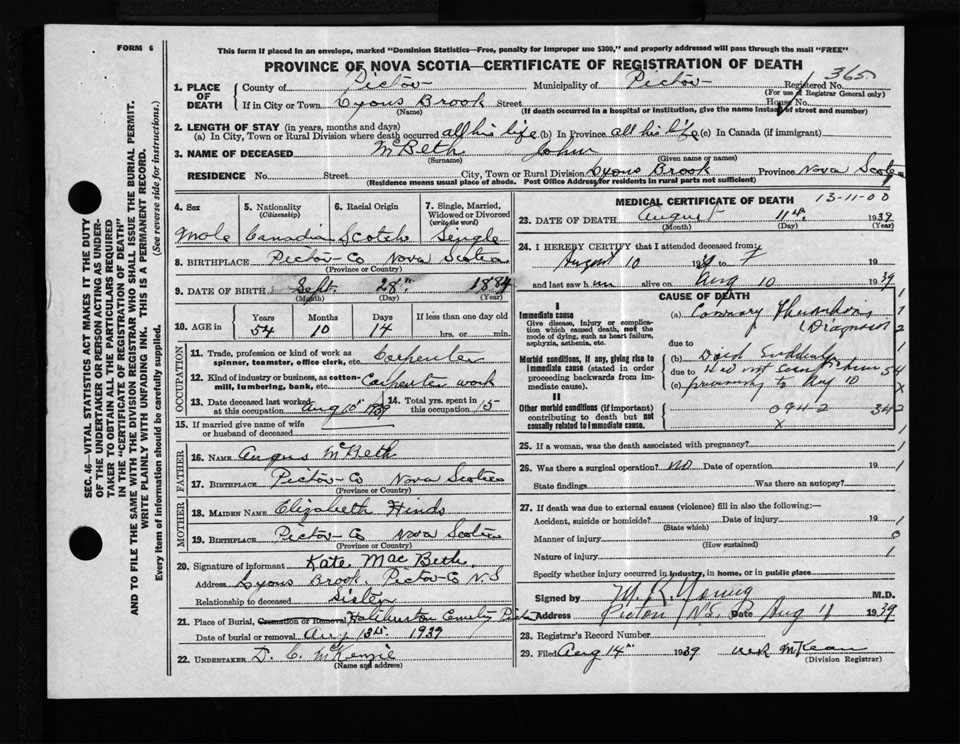 FORM 6
This form if placed in an envelope, marked "Dominion Statistics—Free, penalty for improper use $300," and properly addressed will pass through the mail "FREE"
PROVINCE OF NOVA SCOTIA—CERTIFICATE OF REGISTRATION OF DEATH
365
1. PLACE OF DEATH
County of Pictou Municipality of Pictou Registered No.
(For use Registrar General only)
If in City or Town Lyons Brook Street House No.
(Name) (If death occurred in a hospital or institution, give the name instead of street and number)
2. LENGTH OF STAY (in years, months and days)
(a) In City, Town or Rural Division where death occurred all his life (b) In Province all his life (c) In Canada (if immigrant)
3. NAME OF DECEASED McBeth John
(Surname) (Given name or names)
RESIDENCE No. Street City, Town or Rural Division Lyons Brook Province Nova Scotia
(Residence means usual place of abode. Post Office Address for residents in rural parts not sufficient)
4. Sex 5. Nationality (Citizenship) 6. Racial Origin 7. Single, Married, Widowed or Divorced (write the word)
Male Canadian Scotch Single
8. BIRTHPLACE Pictou Co Nova Scotia
(Province or Country)
9. DATE OF BIRTH Sept. 28th 1884
(Month) (Day) (Year)
10. AGE in Years Months Days If less than one day old
54 10 14 hrs. or min.
OCCUPATION
11. Trade, profession or kind of work as spinner, teamster, office clerk, etc. Carpenter
12. Kind of industry or business, as cotton-mill, lumbering, bank, etc. Carpenter work
13. Date deceased last worked at this occupation Aug 10th 1939 14. Total yrs. spent in this occupation 15
15. If married give name of wife or husband of deceased
FATHER
16. NAME Angus McBeth
17. BIRTHPLACE Pictou Co Nova Scotia
(Province or Country)
MOTHER
18. MAIDEN NAME Elizabeth Hinds
19. BIRTHPLACE Pictou Co Nova Scotia
(Province or Country)
20. Signature of informant Kate MacBeth
Address Lyons Brook, Pictou Co N.S
Relationship to deceased Sister
21. Place of Burial, Cremation or Removal Haliburton Pictou
Date of burial or removal Aug 13th 1939
22. UNDERTAKER D. C. McKenzie
(Name and address)
MEDICAL CERTIFICATE OF DEATH 13-11-00
23. DATE OF DEATH August 11th 1939
(Month) (Day) (Year)
24. I HEREBY CERTIFY that I attended deceased from:
August 10 19 to 19
and last saw him alive on Aug 10 1939
CAUSE OF DEATH
I
Immediate cause
Give disease, injury or complication which caused death, not the mode of dying, such as heart failure, asphyxia, asthenia, etc.
(a) Coronary Thrombosis
(Diagnosis
due to
Morbid conditions, if any, giving rise to immediate cause (stated in order proceeding backwards from immediate cause).
(b) Died Suddenly
due to Had not seen him
(c) previously to Aug 10
54
II
Other morbid conditions (if important) contributing to death but not causally related to immediate cause.
0942 342
x
25. If a woman, was the death associated with pregnancy?
26. Was there a surgical operation? No Date of operation 19
State findings Was there an autopsy?
27. If death was due to external causes (violence) fill in also the following:—
Accident, suicide or homicide? Date of injury 19
(State which)
Manner of injury
(How sustained)
Nature of injury
Specify whether injury occurred in industry, in home, or in public place
Signed by M. R. Young M.D.
Address Pictou N.S. Date Aug 11 1939
28. Registrar's Record Number
29. Filed Aug 14th 1939 McKean
(Division Registrar)
SEC. 46—VITAL STATISTICS ACT MAKES IT THE DUTY
OF THE UNDERTAKER OR PERSON ACTING AS UNDER-
TAKER TO OBTAIN ALL THE PARTICULARS REQUIRED
IN THE "CERTIFICATE OF REGISTRATION OF DEATH"
AND TO FILE THE SAME WITH THE DIVISION REGISTRAR WHO SHALL ISSUE THE BURIAL PERMIT.
WRITE PLAINLY WITH UNFADING INK. THIS IS A PERMANENT RECORD.
Every item of information should be carefully supplied. (See reverse side for instructions.)